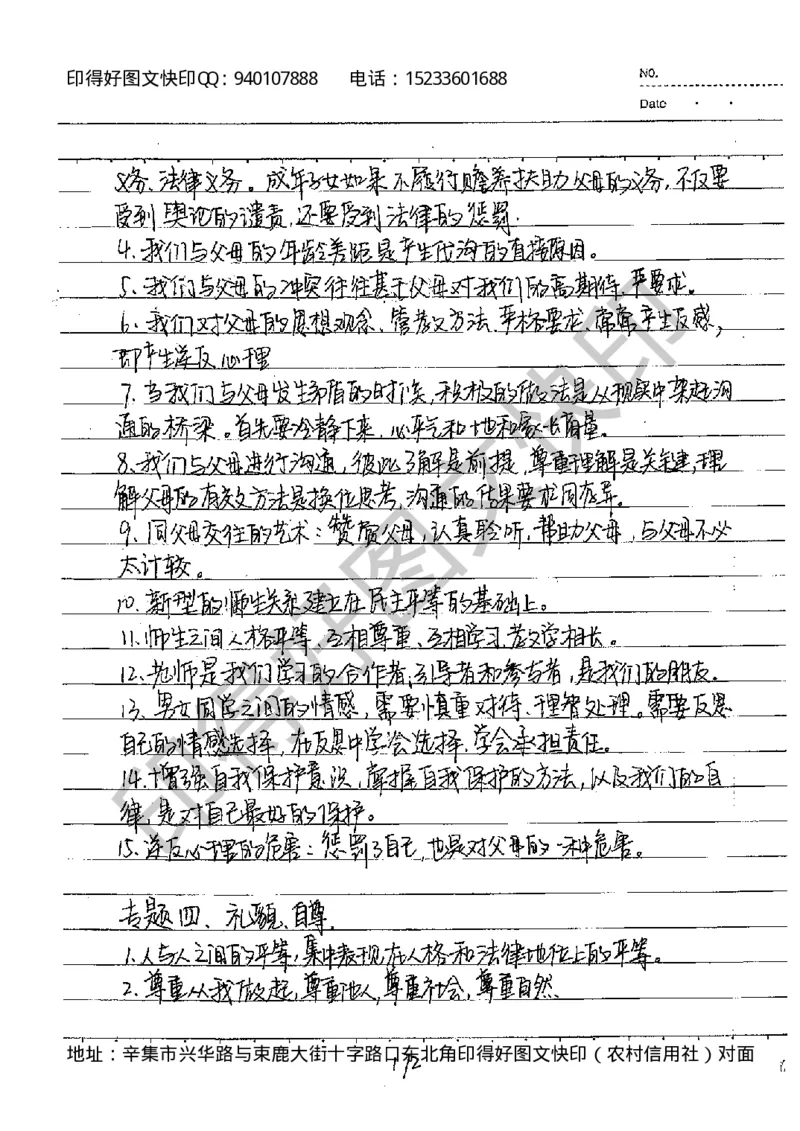 印得好图文快印QQ：940107888 电话：15233601688
No.
Date
义务、法律义务。成年子女如果不履行赡养扶助父母的义务，不仅要
受到舆论的谴责，还要受到法律的惩罚.
4.我们与父母的年龄差距是产生代沟的直接原因。
5.我们与父母的冲突往往基于父母对我们的高期待、严要求。
6.我们对父母的思想观念、管教方法、严格要求，常常产生反感，
即产生逆反心理
7.当我们与父母发生矛盾的时候，积极的做法是从现实中架起沟
通的桥梁。首先要冷静下来，心平气和地和家长商量。
8.我们与父母进行沟通，彼此了解是前提，尊重理解是关键，理
解父母的有效方法是换位思考，沟通的结果要求同存异。
9.同父母交往的艺术：赞赏父母，认真聆听，帮助父母，与父母不必
太计较。
10.新型的师生关系建立在民主平等的基础上。
11.师生之间人格平等，互相尊重、互相学习、教学相长。
12.老师是我们学习的合作者、引导者和参与者，是我们的朋友。
13.男女同学之间的情感，需要慎重对待、理智处理。需要反思
自己的情感选择，在反思中学会选择、学会承担责任。
14.增强自我保护意识，掌握自我保护的方法，以及我们的自
律，是对自己最好的保护。
15.逆反心理的危害：惩罚了自己，也是对父母的一种危害。
专题四、礼貌、自尊.
1.人与人之间的平等，集中表现在人格和法律地位上的平等。
2.尊重从我做起，尊重他人，尊重社会，尊重自然.
地址：辛集市兴华路与束鹿大街十字路口东北角印得好图文快印（农村信用社）对面
印得好图文快印